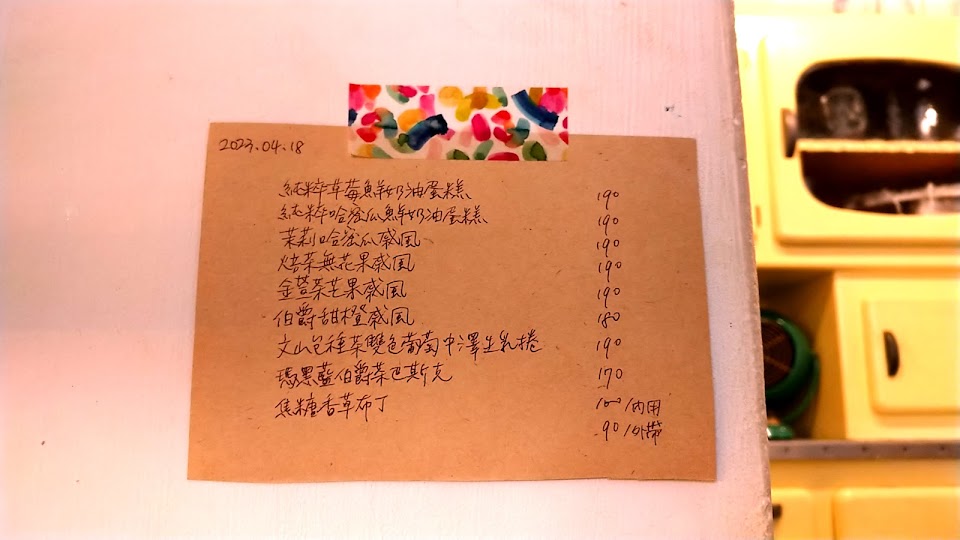 2023.04.18
純粹草莓鮮奶油蛋糕 190
純粹哈密瓜鮮奶油蛋糕 190
茉莉哈密瓜戚風 190
焙茶無花果戚風 190
金萱茶芒果戚風 190
伯爵甜橙戚風 180
文山包種茶雙色葡萄中澤生乳捲 190
瑪黑藍伯爵茶巴斯克 170
焦糖香草布丁 100/內用
90/外帶